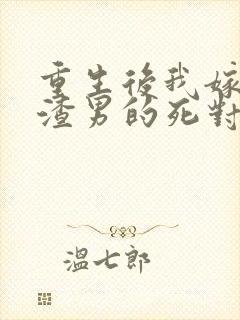 重生後我嫁
渣男的死對
溫七郎